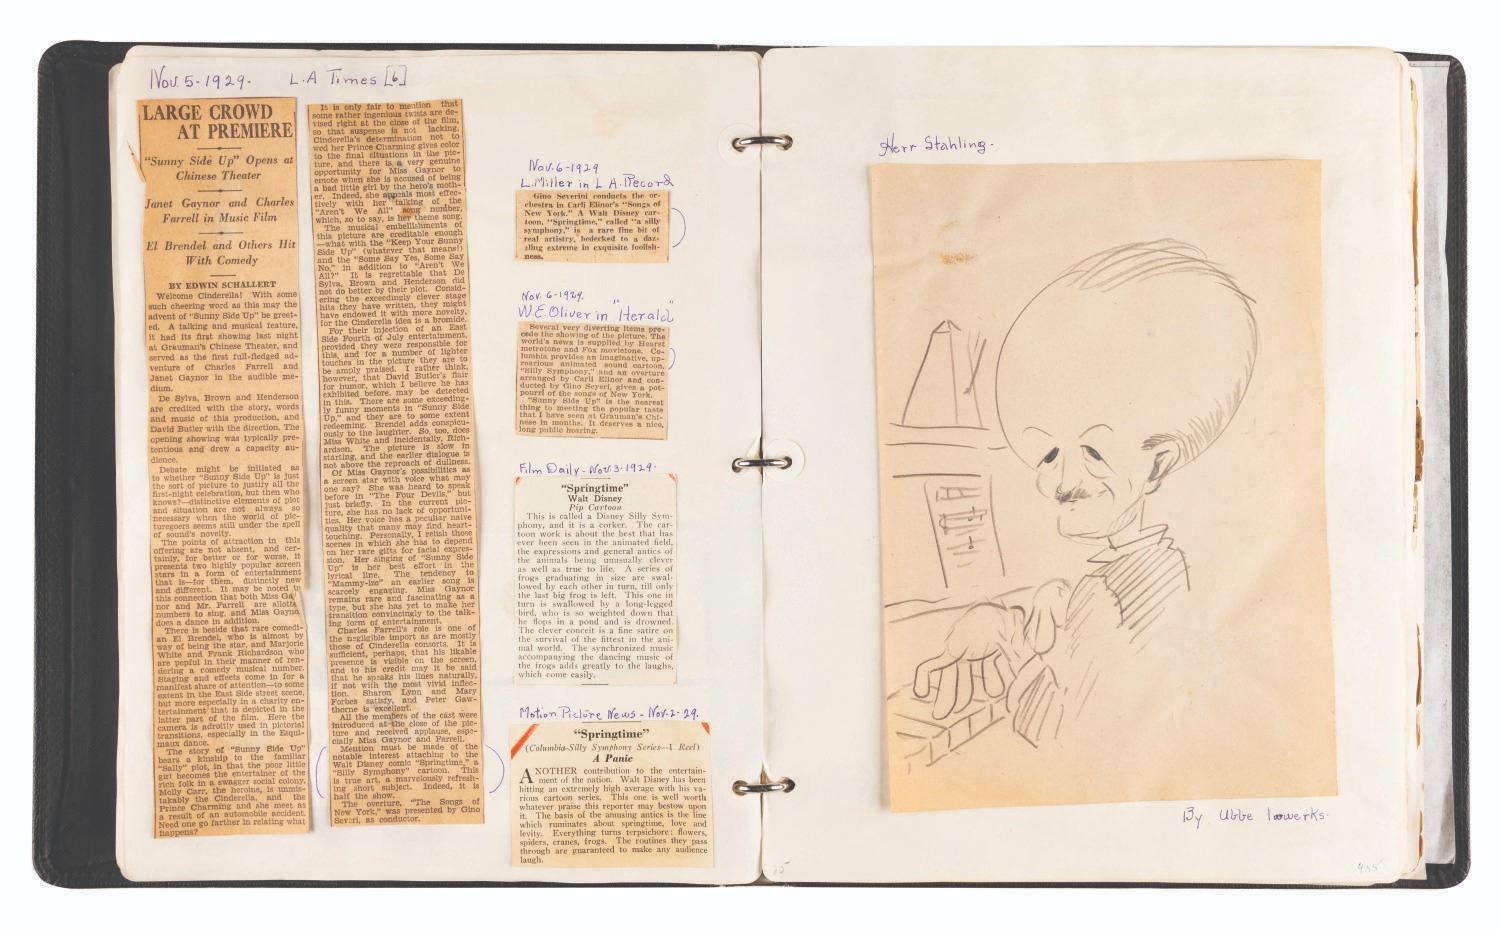 Nov. 5-1929. L.A Times [6]
LARGE CROWD
AT PREMIERE
"Sunny Side Up" Opens at
Chinese Theater
Janet Gaynor and Charles
Farrell in Music Film
El Brendel and Others Hit
With Comedy
BY EDWIN SCHALLERT
Welcome Cinderella! With some
such cheering word as this may the
advent of "Sunny Side Up" be greet-
ed. A talking and musical feature,
it had its first showing last night
at Grauman's Chinese Theater, and
served as the first full-fledged ad-
venture of Charles Farrell and
Janet Gaynor in the audible me-
dium.
De Sylva, Brown and Henderson
are credited with the story, words
and music of this production, and
David Butler with the direction. The
opening showing was typically pre-
tentious and drew a capacity au-
dience.
Debate might be initiated as
to whether "Sunny Side Up" is just
the sort of picture to justify all the
first-night celebration, but then who
knows?—distinctive elements of plot
and situation are not always so
necessary when the world of pic-
turegoers seems still under the spell
of sound's novelty.
The points of attraction in this
offering are not absent, and cer-
tainly, for better or for worse, it
presents two highly popular screen
stars in a form of entertainment
that is—for them, distinctly new
and different. It may be noted in
this connection that both Miss Gay
nor and Mr. Farrell are allotte
numbers to sing, and Miss Gayno
does a dance in addition.
There is beside that rare comedi-
an El Brendel, who is almost by
way of being the star, and Marjorie
White and Frank Richardson who
are pepful in their manner of ren-
dering a comedy musical number.
Staging and effects come in for a
manifest share of attention—to some
extent in the East Side street scene,
but more especially in a charity en-
tertainment that is depicted in the
latter part of the film. Here the
camera is adroitly used in pictorial
transitions, especially in the Esqui-
maux dance.
The story of "Sunny Side Up"
bears a kinship to the familiar
"Sally" plot, in that the poor little
girl becomes the entertainer of the
rich folk in a swagger social colony.
Molly Carr, the heroine, is unmis-
takably the Cinderella, and the
Prince Charming and she meet as
a result of an automobile accident.
Need one go farther in relating what
happens?
It is only fair to mention that
some rather ingenious twists are de-
vised right at the close of the film,
so that suspense is not lacking.
Cinderella's determination not to
wed her Prince Charming gives color
to the final situations in the pic-
ture, and there is a very genuine
opportunity for Miss Gaynor to
emote when she is accused of being
a bad little girl by the hero's moth-
er. Indeed, she appeals most effec-
tively with her talking of the
"Aren't We All" song number,
which, so to say, is her theme song.
The musical embellishments of
this picture are creditable enough
—what with the "Keep Your Sunny
Side Up" (whatever that means!)
and the "Some Say Yes, Some Say
No," in addition to "Aren't We
All?" It is regrettable that De
Sylva, Brown and Henderson did
not do better by their plot. Consid-
ering the exceedingly clever stage
hits they have written, they might
have endowed it with more novelty,
for the Cinderella idea is a bromide.
For their injection of an East
Side Fourth of July entertainment,
provided they were responsible for
this, and for a number of lighter
touches in the picture they are to
be amply praised. I rather think,
however, that David Butler's flair
for humor, which I believe he has
exhibited before, may be detected
in this. There are some exceeding-
ly funny moments in "Sunny Side
Up," and they are to some extent
redeeming. Brendel adds conspicu-
ously to the laughter. So, too, does
Miss White and incidentally, Rich-
ardson. The picture is slow in
starting, and the earlier dialogue is
not above the reproach of dullness.
Of Miss Gaynor's possibilities as
a screen star with voice what may
one say? She was heard to speak
before in "The Four Devils," but
just briefly. In the current pic-
ture, she has no lack of opportuni-
ties. Her voice has a peculiar naive
quality that many may find heart-
touching. Personally, I relish those
scenes in which she has to depend
on her rare gifts for facial expres-
sion. Her singing of "Sunny Side
Up" is her best effort in the
lyrical line. The tendency to
"Mammy-ize" an earlier song is
scarcely engaging. Miss Gaynor
remains rare and fascinating as a
type, but she has yet to make her
transition convincingly to the talk-
ing form of entertainment.
Charles Farrell's role is one of
the negligible import as are mostly
those of Cinderella consorts. It is
sufficient, perhaps, that his likable
presence is visible on the screen,
and to his credit may it be said
that he speaks his lines naturally,
if not with the most vivid inflec-
tion. Sharon Lynn and Mary
Forbes satisfy, and Peter Gaw-
thorne is excellent.
All the members of the cast were
introduced at the close of the pic-
ture and received applause, espe-
cially Miss Gaynor and Farrell.
Mention must be made of the
notable interest attaching to the
Walt Disney comic "Springtime," a
"Silly Symphony" cartoon. This
is true art, a marvelously refresh-
ing short subject. Indeed, it is
half the show.
The overture, "The Songs of
New York," was presented by Gino
Severi, as conductor.
Nov. 6-1929
L. Miller in L.A. Record
Gino Severini conducts the or-
chestra in Carli Elinor's "Songs of
New York." A Walt Disney car-
toon, "Springtime," called "a silly
symphony," is a rare fine bit of
real artistry, bedecked to a daz-
zling extreme in exquisite foolish-
ness.
Nov. 6-1929.
W.E. Oliver in "Herald"
Several very diverting items pre-
cede the showing of the picture. The
world's news is supplied by Hearst
metrotone and Fox movietone. Co-
lumbia provides an imaginative, up-
roarious animated sound cartoon,
"Silly Symphony," and an overture
arranged by Carli Elinor and con-
ducted by Gino Seyeri, gives a pot-
pourri of the songs of New York.
"Sunny Side Up" is the nearest
thing to meeting the popular taste
that I have seen at Grauman's Chi-
nese in months. It deserves a nice,
long public hearing.
Film Daily - Nov. 3-1929.
"Springtime"
Walt Disney
Pip Cartoon
This is called a Disney Silly Sym-
phony, and it is a corker. The car-
toon work is about the best that has
ever been seen in the animated field,
the expressions and general antics of
the animals being unusually clever
as well as true to life. A series of
frogs graduating in size are swal-
lowed by each other in turn, till only
the last big frog is left. This one in
turn is swallowed by a long-legged
bird, who is so weighted down that
he flops in a pond and is drowned.
The clever conceit is a fine satire on
the survival of the fittest in the ani-
mal world. The synchronized music
accompanying the dancing music of
the frogs adds greatly to the laughs,
which come easily.
Motion Picture News - Nov-2-29.
"Springtime"
(Columbia-Silly Symphony Series—1 Reel)
A Panic
ANOTHER contribution to the entertain-
ment of the nation. Walt Disney has been
hitting an extremely high average with his va-
rious cartoon series. This one is well worth
whatever praise this reporter may bestow upon
it. The basis of the amusing antics is the line
which ruminates about springtime, love and
levity. Everything turns terpsichore: flowers,
spiders, cranes, frogs. The routines they pass
through are guaranteed to make any audience
laugh.
Herr Stahling.
By Ubbe Iwwerks.